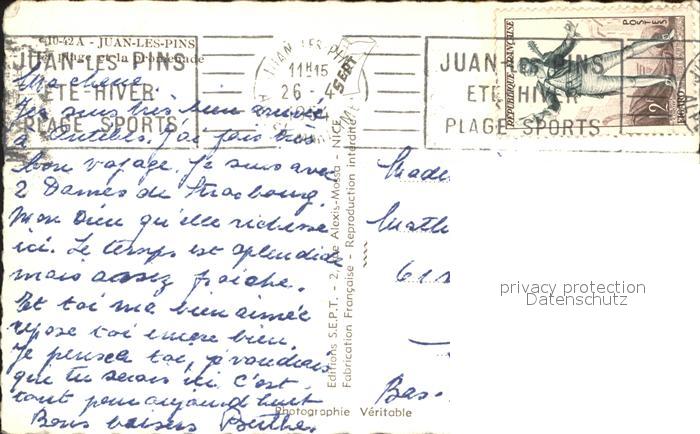 10-42 A - JUAN-LES-PINS
La plage et la promenade
JUAN-LES-PINS
ETE-HIVER
PLAGE SPORTS
JUAN-LES-PINS
11H15
26 - 4
JUAN-LES-PINS
ETE-HIVER
PLAGE SPORTS
REPUBLIQUE FRANÇAISE
POSTES
12F
Ma cherie.
Je suis très bien arrivé
à Antibes. J'ai fais très
bon voyage. Je suis avec
2 Dames de Strasbourg.
Mon Dieu qu'elle richesse
ici. Le temps est splendide
mais assez fraiche.
Et toi ma bien aimée
repose toi encore bien.
Je pense a toi, j'voudrais
que tu serais ici. C'est
tout pour aujourd'huit
Bons baisers Berthe.
Editions S.E.P.T. - 2, Rue Alexis-Mossa - NICE
Fabrication Française - Reproduction interdite
SEPT
Photographie Véritable
Made
Math
61
Bas-
privacy protection
Datenschutz